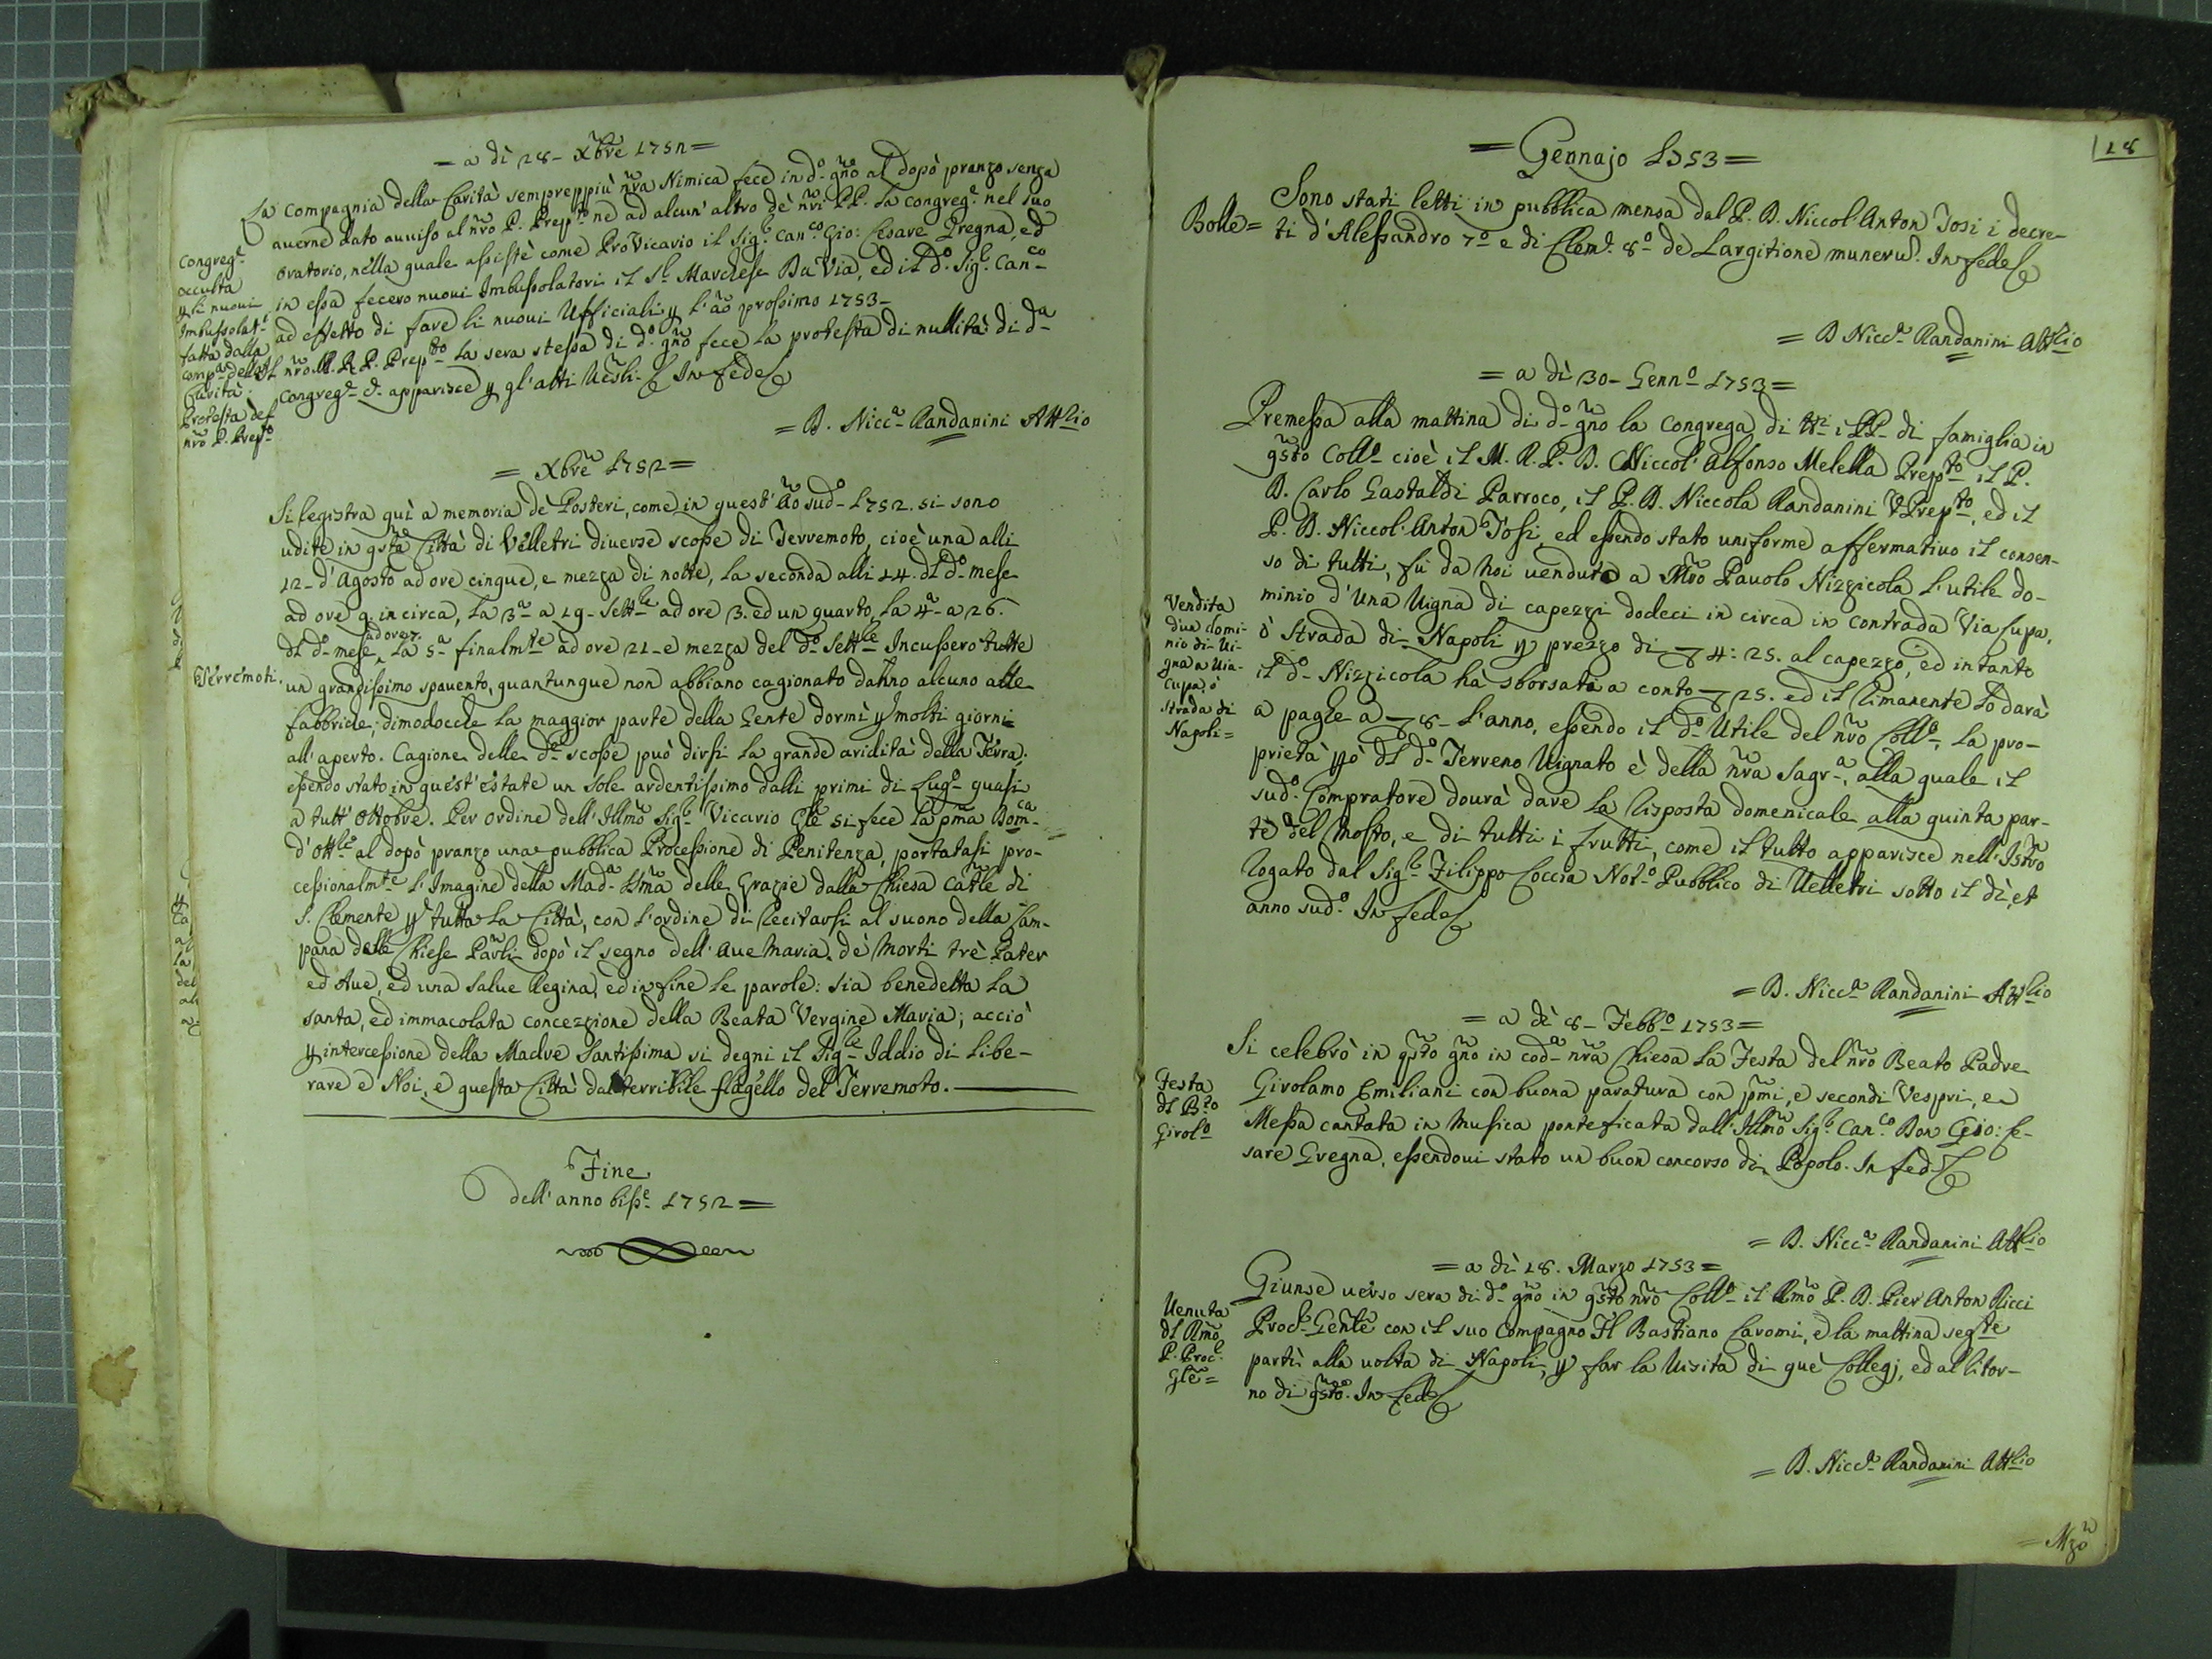 = a dì 28 - Xbre 1752 =
La Compagnia della Carità semprepppiù nra Nimica fece in d.o gno al dopò pranzo senza
auerne dato auuiso al nro P. Prep.to nè ad alcun' altro dè nri PP. la congreg.e nel suo
oratorio, nella quale assistè come ProVicario il Sig.r Can.co Gio: Cesare Gregna, ed
in essa fecero nuoui Imbussolatori il S.r Marchese Du Via, ed il d.o Sig.r Can.co
ad effetto di fare li nuoui Ufficiali p l'ao prossimo 1753 -
Il nro M. R. P. Prep.to la sera stessa di d.o gno fece la protesta di nullità di d.a
Congreg.e e apparisce p gl'atti Uesli. In fede
Congreg.e
occulta
p li nuoui
Imbussolat.i
fatta dalla
comp.a della
Carità.
Protesta del
nro P. Prep.to
= D. Nicc.a Randanini Att.lio
= Xbre 1752 =
Si registra quì a memoria dè Posteri, come in quest' ao sud.o 1752. si sono
udite in qsta Città di Velletri diuerse scosse di Terremoto, cioè una alli
12 - d'Agosto ad ore cinque, e mezza di notte, la seconda alli 14. dl d.o mese
ad ore 9. in circa, la 3.a a 19 - Sett.bre ad ore 3. ed un quarto, la 4.a a 26.
dl d.o mese ad ore 7. la 5.a finalm.te ad ore 21 - e mezza del d.o Sett.bre Incussero tutte
Terremoti.
un grandissimo spauento, quantunque non abbiano cagionato danno alcuno alle
fabbriche; dimodocche la maggior parte della Gente dormì p molti giorni
all' aperto. Cagione delle d.e scosse può dirsi la grande aridità della Terra,
essendo stato in quest' estate un Sole ardentissimo dalli primi di Lug.o quasi
a tutt' Ottobre. Per ordine dell' Illmo Sig.r Vicario Gle si fece la pma Dom.ca
d'Ott.bre al dopò pranzo una pubblica Processione di Penitenza, portatasi pro-
cessionalm.te l'Imagine della Mad.a SSma delle Grazie dalla Chiesa Catle di
S. Clemente p tutta la Città, con l'ordine di recitarsi al suono della Cam-
pana delle Chiese Parli dopò il segno dell' Aue Maria dè Morti trè Pater
ed Aue, ed una Salue Regina, ed in fine le parole: sia benedetta la
santa, ed immacolata concezzione della Beata Vergine Maria; acciò
p intercessione della Madre Santissima si degni il Sig.re Iddio di libe-
rare e Noi, e questa Città dal terribile flagello del Terremoto.
Fine
dell' anno biss.e 1752 =
18
= Gennajo 1753 =
Bolle =
Sono stati letti in pubblica mensa dal P. D. Niccol' Anton Tosi i decre-
ti d'Alessandro 7.o e di Clem.e 8.o dè Largitione muneru. In fede
= D Nicc.a Randanini Att.lio
= a dì 30 - Genn.o 1753 =
Premessa alla mattina di d.o gno la congrega di tti i PP. di famiglia in
qsto Coll.o cioè il M. R. P. D. Niccol' Alfonso Melella Prep.to il P.
D. Carlo Gastaldi Parroco, il P. D. Niccola Randanini VPrep.to, ed il
P. D. Niccol' Anton Tosi, ed essendo stato uniforme affermatiuo il consen-
so di tutti, fù da Noi venduto a Mro Pauolo Nizzicola l'utile do-
minio d'una Vigna di capezzi dodeci in circa in contrada Via Cupa,
ò Strada di Napoli p prezzo di 4: 25. al capezzo, ed intanto
il d.o Nizzicola ha sborsati a conto 25. ed il rimanente lo darà
a paghe a 8 - l'anno, essendo il d.o Utile del nro Coll.o, la pro-
prietà pò dl d.o Terreno Vignato è della nra Sagr.a, alla quale il
sud.o Compratore dourà dare la risposta domenicale alla quinta par-
te del Mosto, e di tutti i frutti, come il tutto apparisce nell' Istro
rogato dal Sig.r Filippo Coccia Not.o Pubblico di Velletri sotto il dì, et
anno sud.o In fede
Vendita
d'un domi-
nio di Vi-
gna a Via
Cupa, ò
strada di
Napoli =
= D. Nicc.a Randanini Att.lio
= a dì 8 - Febb.o 1753 =
Si celebrò in qsto gno in cod.a nra Chiesa la Festa del nro Beato Padre
Girolamo Emiliani con buona paratura con pmi, e secondi Vespri, e
Messa cantata in Musica ponteficata dall' Illmo Sig.r Can.co Don Gio: Ce-
sare Gregna, essendoui stato un buon concorso di Popolo. In fed.
Festa
dl B.to
Girol.o
= D. Nicc.a Randanini Att.lio
= a dì 18. Marzo 1753 =
Giunse uerso sera di d.o gno in qsto nro Coll.o il Rmo P. D. Pier Anton Ricci
Proc.r Genle con il suo Compagno Fl Bastiano Caromi, e la mattina seg.te
partì alla uolta di Napoli, p far la Visita di què Collegj, ed al ritor-
no di qsto. In fede
Uenuta
dl Rmo
P. Proc.
Gle =
= D. Nicc.a Randanini Att.lio
= Mzo